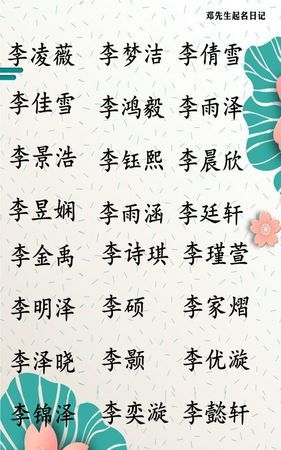 邓先生起名日记
李凌薇 李梦洁 李倩雪
李佳雪 李鸿毅 李雨泽
李景浩 李钰熙 李晨欣
李昱娴 李雨涵 李廷轩
李金禹 李诗琪 李瑾萱
李明泽 李硕 李家熠
李泽晓 李颢 李优漩
李锦泽 李奕漩 李懿轩